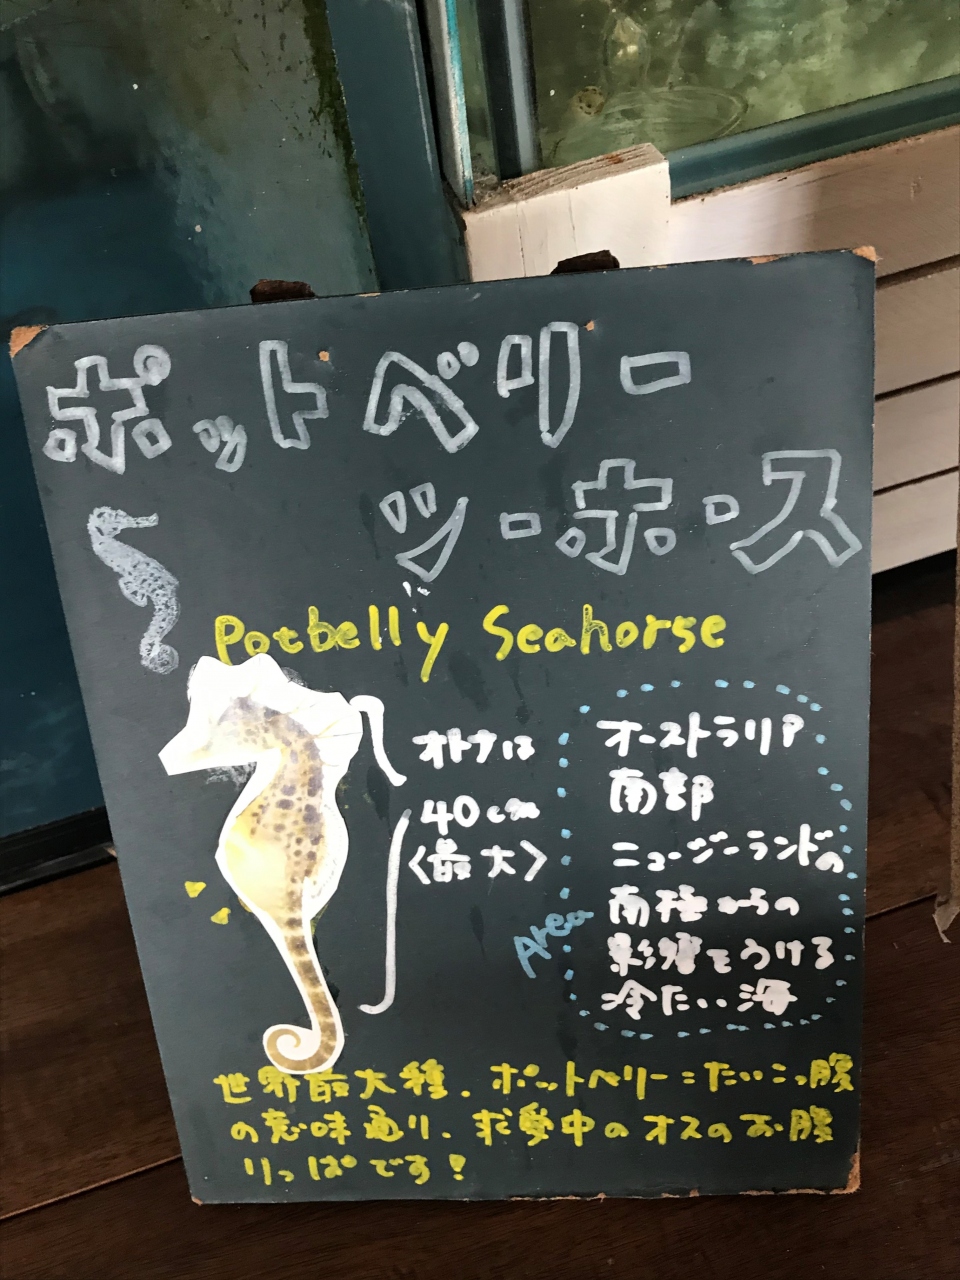 ポットベリー
シーホース
Potbelly Seahorse
オトナは
40cm
〈最大〉
オーストラリア
南部
ニュージーランドの
南極からの
影響をうける
冷たい海
Area
世界最大種。ポットベリー=たいこっ腹
の意味通り、求愛中のオスのお腹
りっぱです!